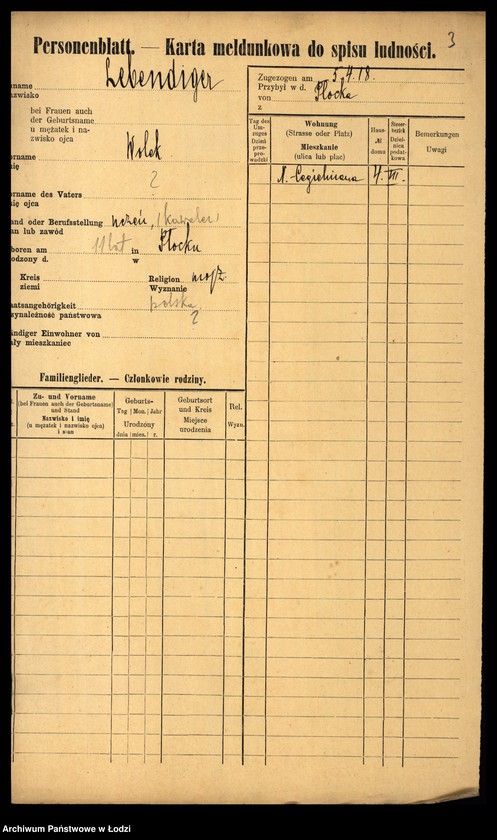 3
Personenblatt. — Karta meldunkowa do spisu ludności.
name Lebendiger
azwisko
bei Frauen auch
der Geburtsname
u mężatek i na-
zwisko ojca
orname Wolek
ię
orname des Vaters ?
ię ojca
and oder Berufsstellung uczeń, (kawaler)
an lub zawód
boren am 11 lat in Płocku
odzony d. w
Kreis
ziemi
Religion mojż
Wyznanie
aatsangehörigkeit polska
zynależność państwowa ?
ändiger Einwohner von
ały mieszkaniec
Familienglieder. — Członkowie rodziny.
Zu- und Vorname
(bei Frauen auch der Geburtsname)
und Stand
Nazwisko i imię
(u mężatek i nazwisko ojca)
i stan
Geburts-
Tag Mon. Jahr
Urodzony
dnia mies. r.
Geburtsort
und Kreis
Miejsce
urodzenia
Rel.
Wyzn.
Zugezogen am 5.4.18.
Przybył w d.
von Płocka
z
Tag des
Um-
zuges
Dzień
prze-
prowadzki
Wohnung
(Strasse oder Platz)
Mieszkanie
(ulica lub plac)
Haus-
№
domu
Steuer-
bezirk
Dziel-
nica
podat-
kowa
Bemerkungen
Uwagi
N.-Cegielniana 4. VII.
Archiwum Państwowe w Łodzi